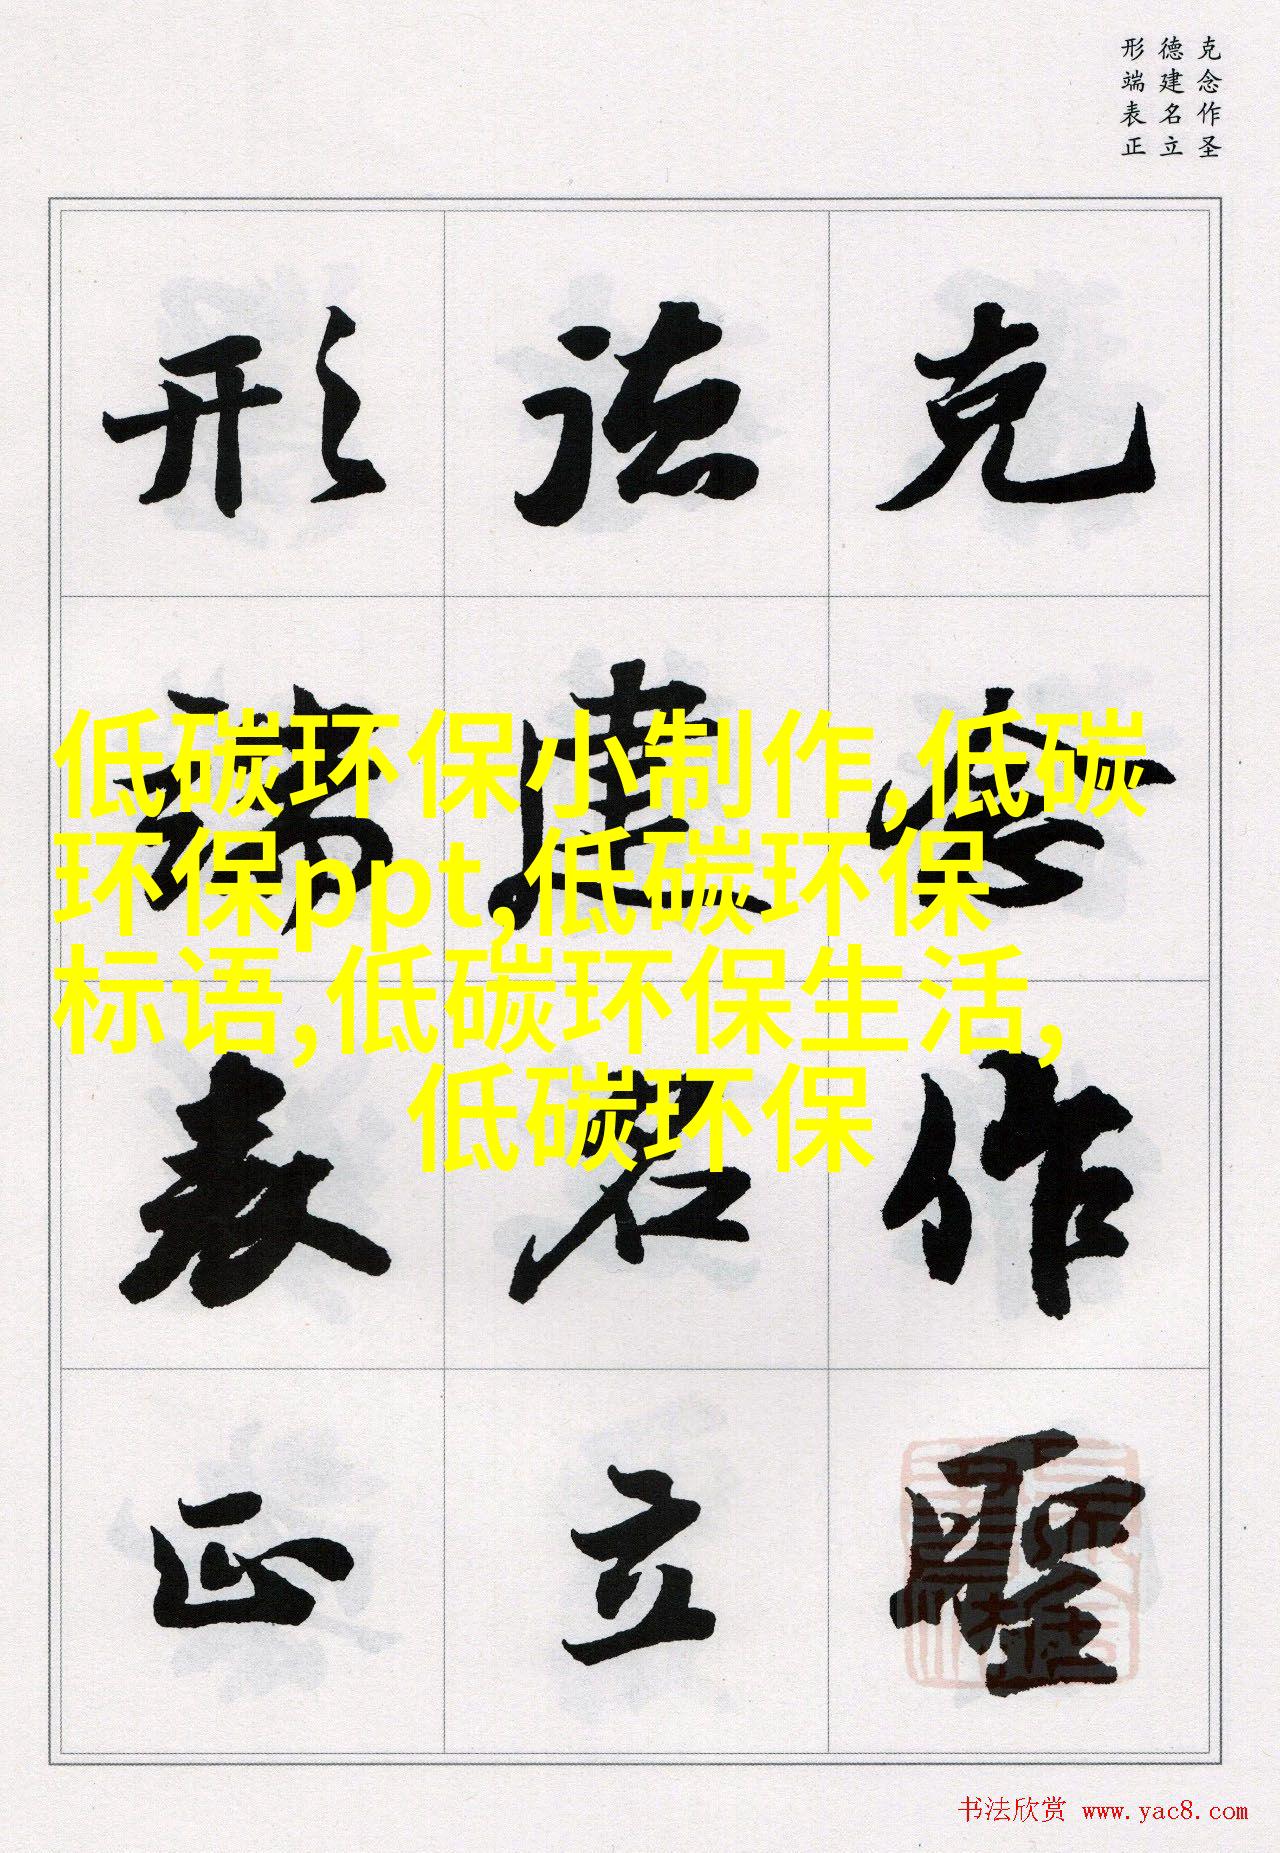 克念作圣
德建名立
形端表正
克念作聖
建名立
形端表正
低碳环保小制作,低碳
环保ppt,低碳环保
标语,低碳环保生活,
低碳环保
书法欣赏 www.yac8.com